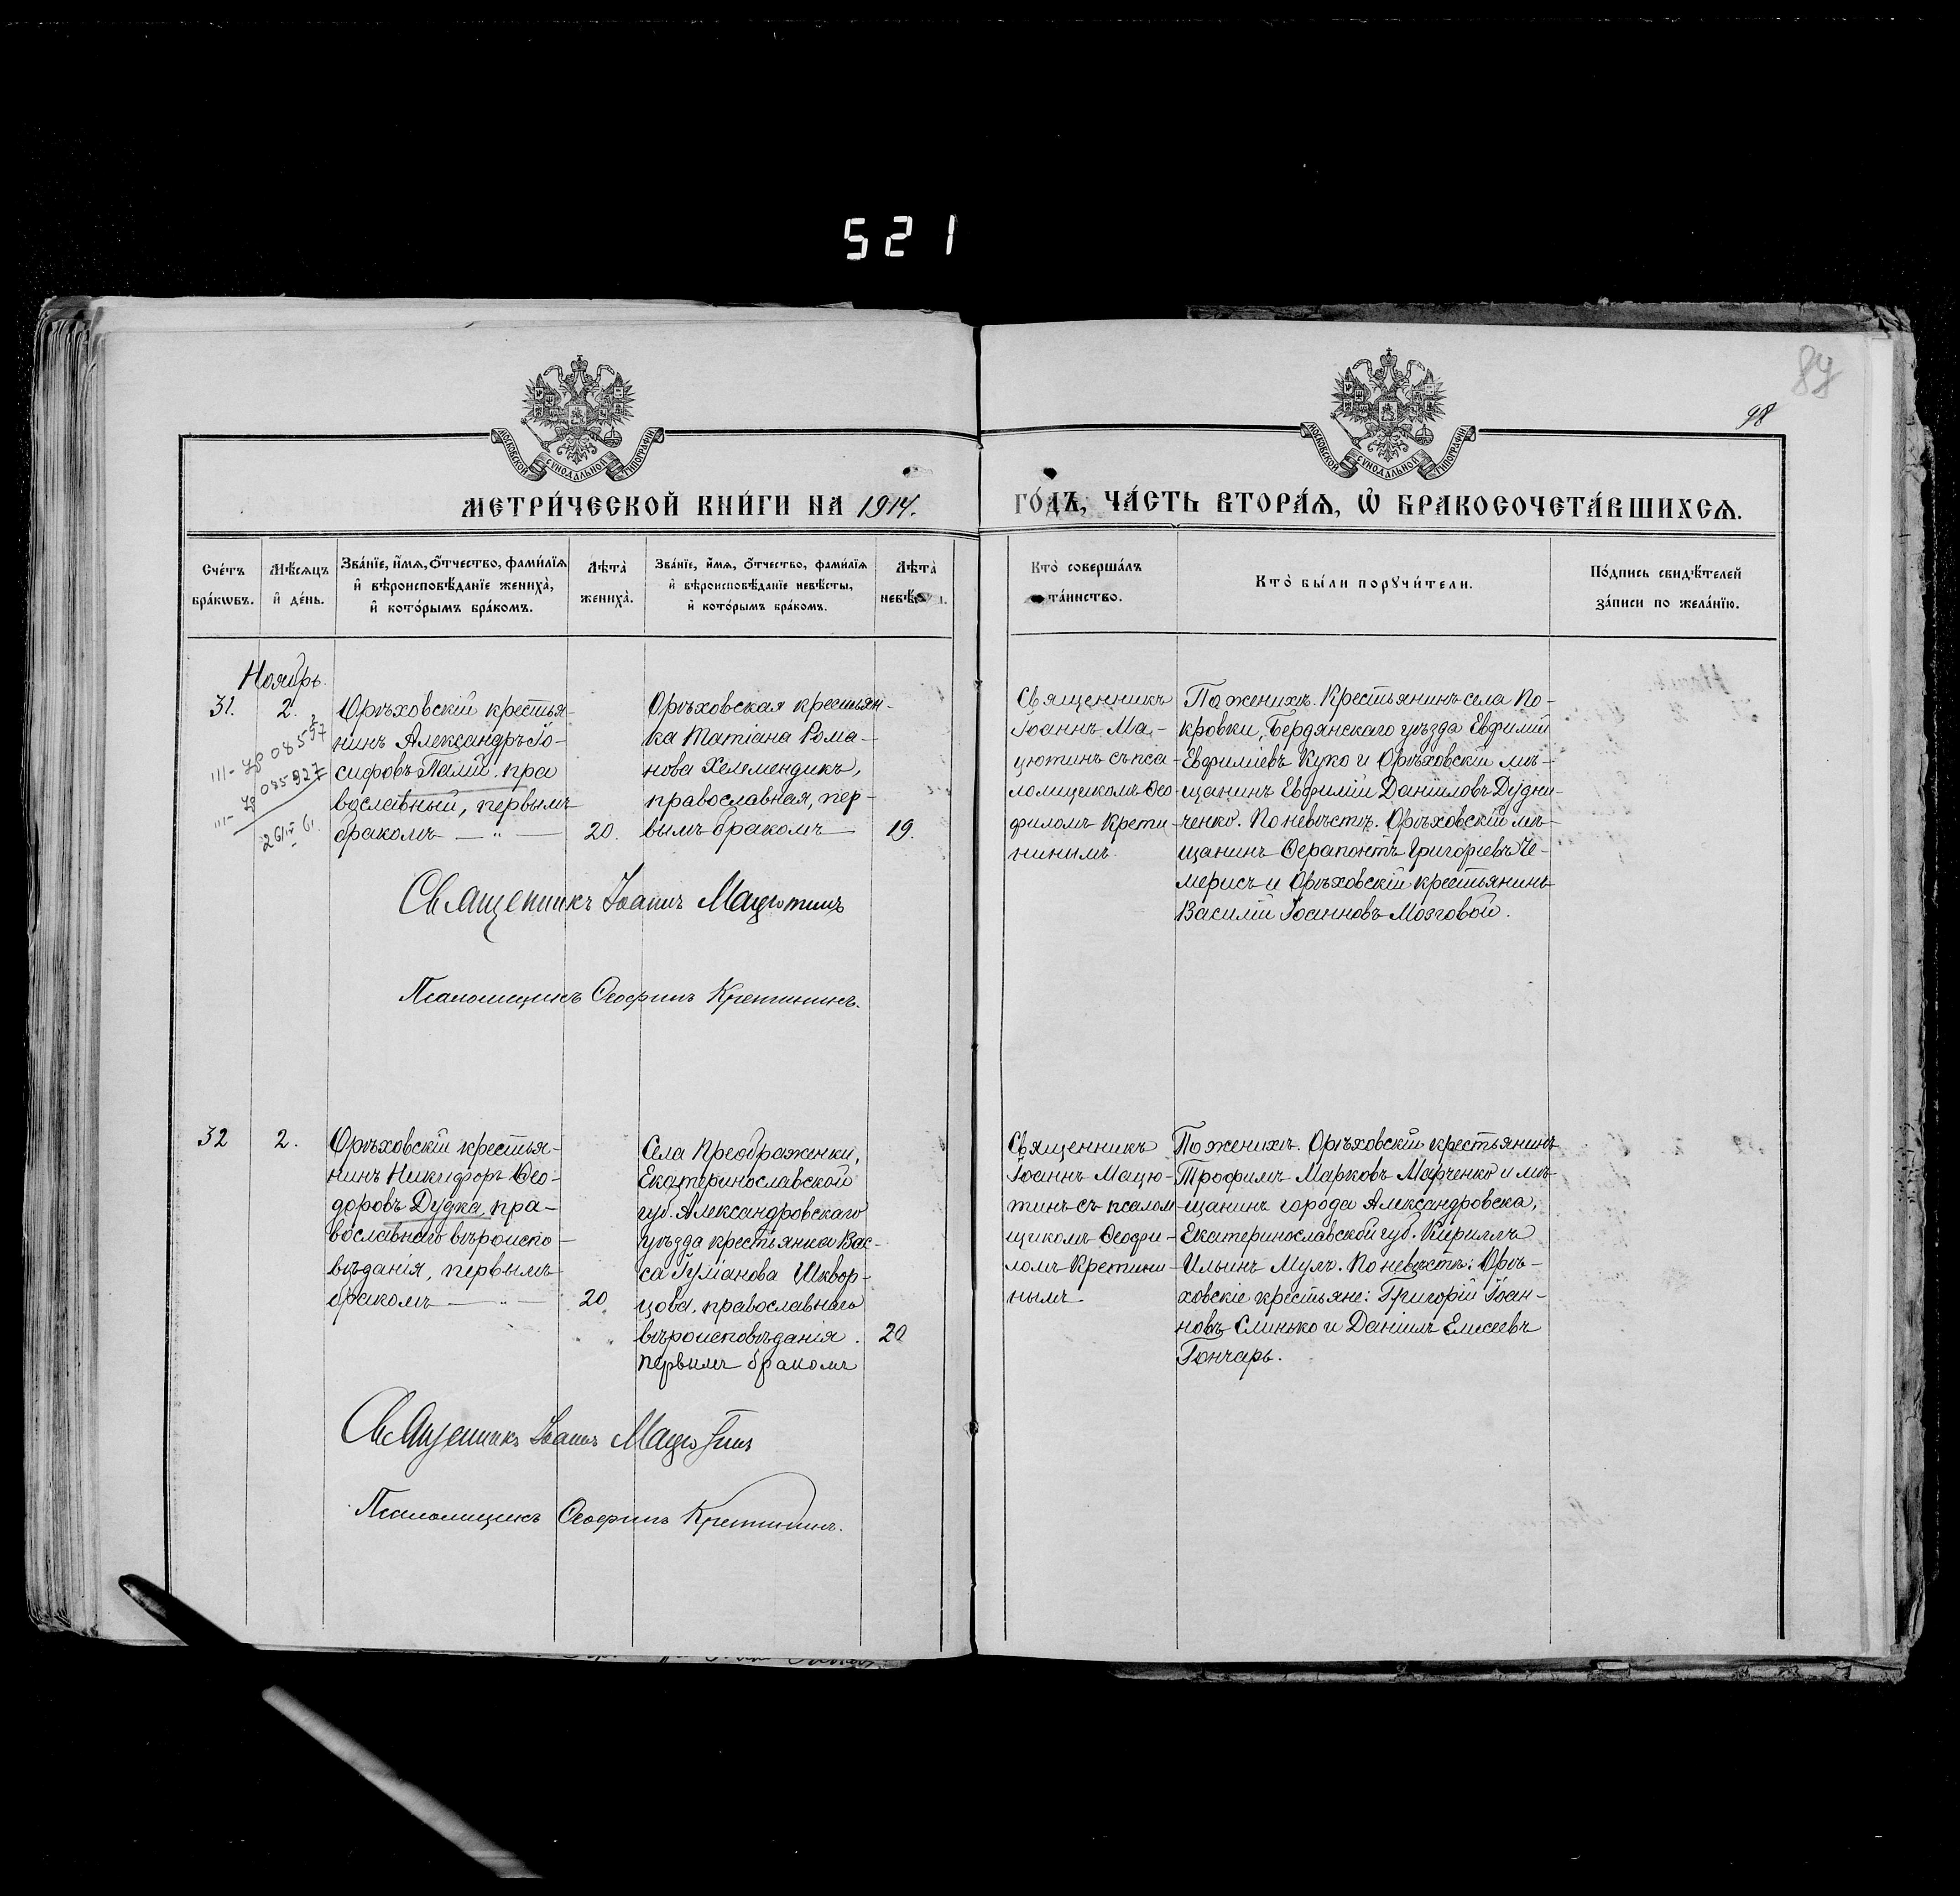 521
87
98
МОСКОВСКОЙ СѴНОДАЛЬНОЙ ТИПОГРАФІИ
МОСКОВСКОЙ СѴНОДАЛЬНОЙ ТИПОГРАФІИ
МЕТРИ́ЧЕСКОЙ КНИ́ГИ НА 1914. ГО́ДЪ, ЧА́СТЬ ВТОРА́Ѧ, Ѡ҆ БРАКОСОЧЕТА́ВШИХСѦ.
Сче́тъ
бра́кѡвъ.
Мѣ́сѧцъ
и҆ де́нь.
Зва́нїе, и҆́мѧ, ѻ҆́тчество, фами́лїѧ
и҆ вѣроисповѣ́данїе жениха̀,
и҆ кото́рымъ бра́комъ.
Лѣта̀
жениха̀.
Зва́нїе, и҆́мѧ, ѻ҆́тчество, фами́лїѧ
и҆ вѣроисповѣ́данїе невѣ́сты,
и҆ кото́рымъ бра́комъ.
Лѣта̀
Кто̀ соверша́лъ
та́инство.
Кто̀ бы́ли порꙋчи́тели.
По́дпись свидѣ́телей
за́писи по жела́нїю.
Ноябрь.
31.
2.
Орѣховскій крестья-
нинъ Александръ Іо-
сифовъ Палій. пра
вославный, первымъ
бракомъ — „ —
20.
Орѣховская крестьян-
ка Татіана Рома-
нова Хелемендикъ,
православная, пер-
вымъ бракомъ —
19.
Священникъ
Іоаннъ Ма-
цютинъ съ пса-
ломщикомъ Ѳео-
филомъ Крети-
нинымъ.
По женихѣ. Крестьянинъ села По-
кровки, Бердянскаго уѣзда Евфимій
Евфиміевъ Куко и Орѣховскій мѣ-
щанинъ Евфимій Даніиловъ Дудни-
ченко. По невѣстѣ. Орѣховскій мѣ-
щанинъ Ѳерапонтъ Григоріевъ Че-
мерисъ и Орѣховскій крестьянинъ
Василій Іоанновъ Мозговой.
Священникъ Іоаннъ Мацютинъ
Псаломщикъ Ѳеофилъ Кретининъ.
32
2.
Орѣховскій крестья-
нинъ Никифоръ Ѳео-
доровъ Дудка, пра-
вославнаго вѣроиспо-
вѣданія, первымъ
бракомъ — „ —
20
Села Преображенки,
Екатеринославской
губ. Александровскаго
уѣзда крестьянка Вас-
са Гуліанова Шквор-
цова, православнаго
вѣроисповѣданія.
первымъ бракомъ
20
Священникъ
Іоаннъ Мацю-
тинъ съ псалом
щикомъ Ѳеофи-
ломъ Кретини-
нымъ.
По женихѣ. Орѣховскій крестьянинъ
Трофимъ Марковъ Марченко и мѣ-
щанинъ города Александровска,
Екатеринославской губ. Кириллъ
Ильинъ Мулъ. По невѣстѣ: Орѣ-
ховскіе крестьяне: Григорій Іоан-
новъ Слинько и Даніилъ Елисеевъ
Гончарь.
Священникъ Іоаннъ Мацютинъ
Псаломщикъ Ѳеофилъ Кретининъ.